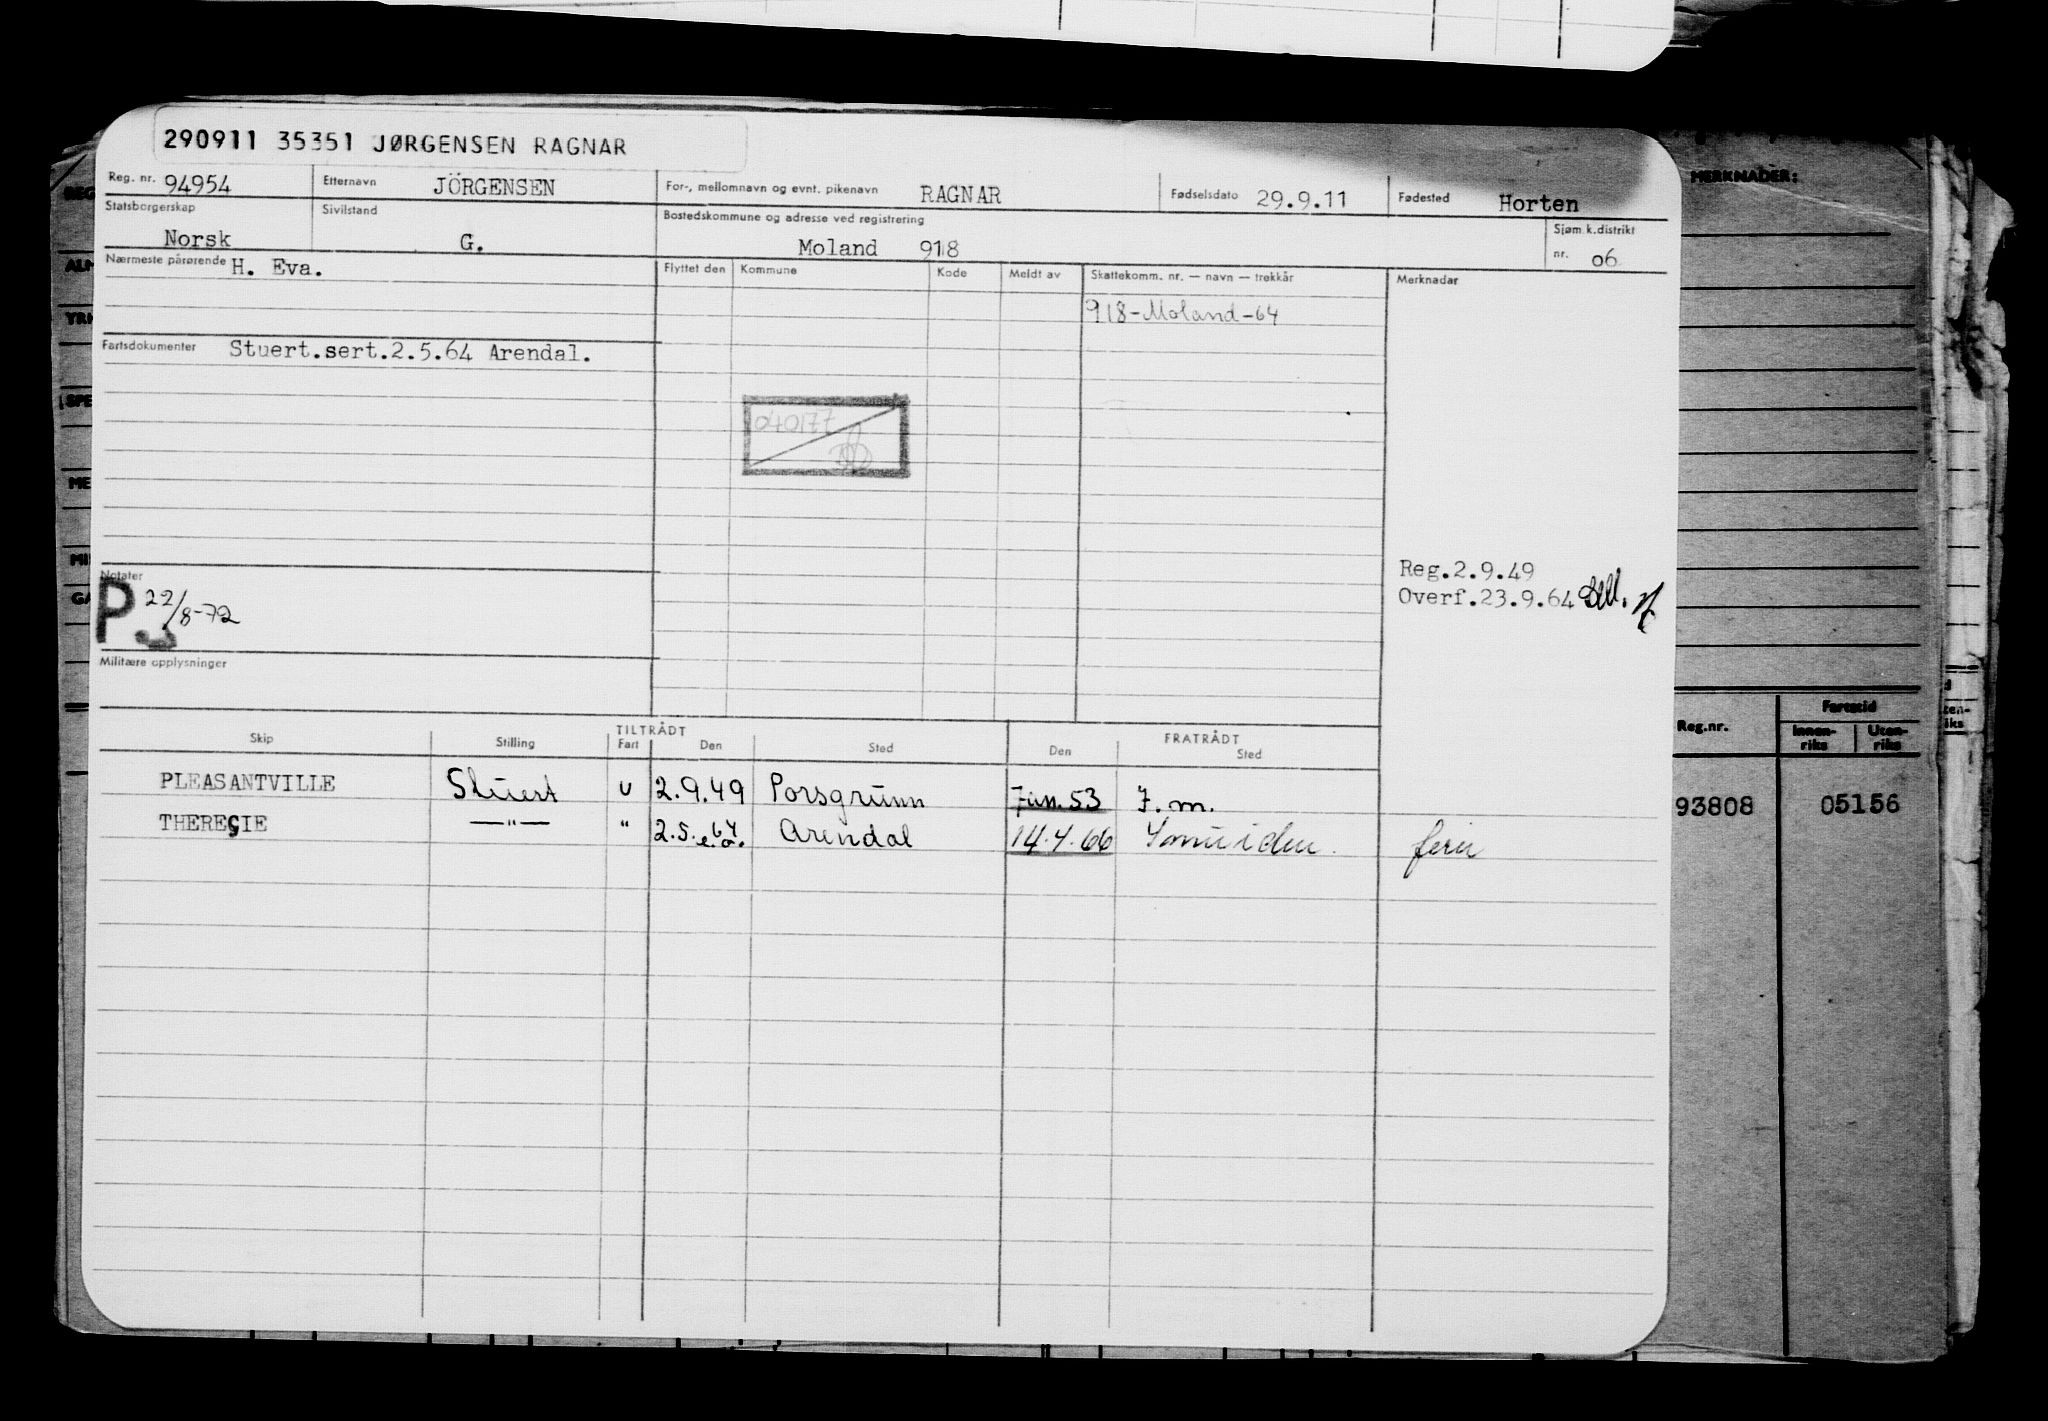 290911 35351 JØRGENSEN RAGNAR
Reg. nr. 94954 Etternavn JÖRGENSEN For-, mellomnavn og evnt. pikenavn RAGNAR Fødselsdato 29.9.11 Fødested Horten
Statsborgerskap Norsk Sivilstand G. Bostedskommune og adresse ved registrering Moland 918 Sjøm.k.distrikt nr. 06
Nærmeste pårørende H. Eva. Flyttet den Kommune Kode Meldt av Skattekomm. nr. — navn — trekkår Merknader
918-Moland-64
Fartsdokumenter Stuert.sert.2.5.64 Arendal.
040177
Reg.2.9.49
Overf.23.9.64
Notater
P 22/8-72
Militære opplysninger
TILTRÅDT FRATRÅDT
Skip Stilling Fart Den Sted Den Sted
PLEASANTVILLE Stuert U 2.9.49 Porsgrunn Jan. 53 F.m.
THERESIE —"— " 2.5.64 e.a. Arendal 14.4.66 Ymuiden. ferie
MERKNADER:
Reg.nr. Fartstid
Innen-riks Uten-riks
93808 05156